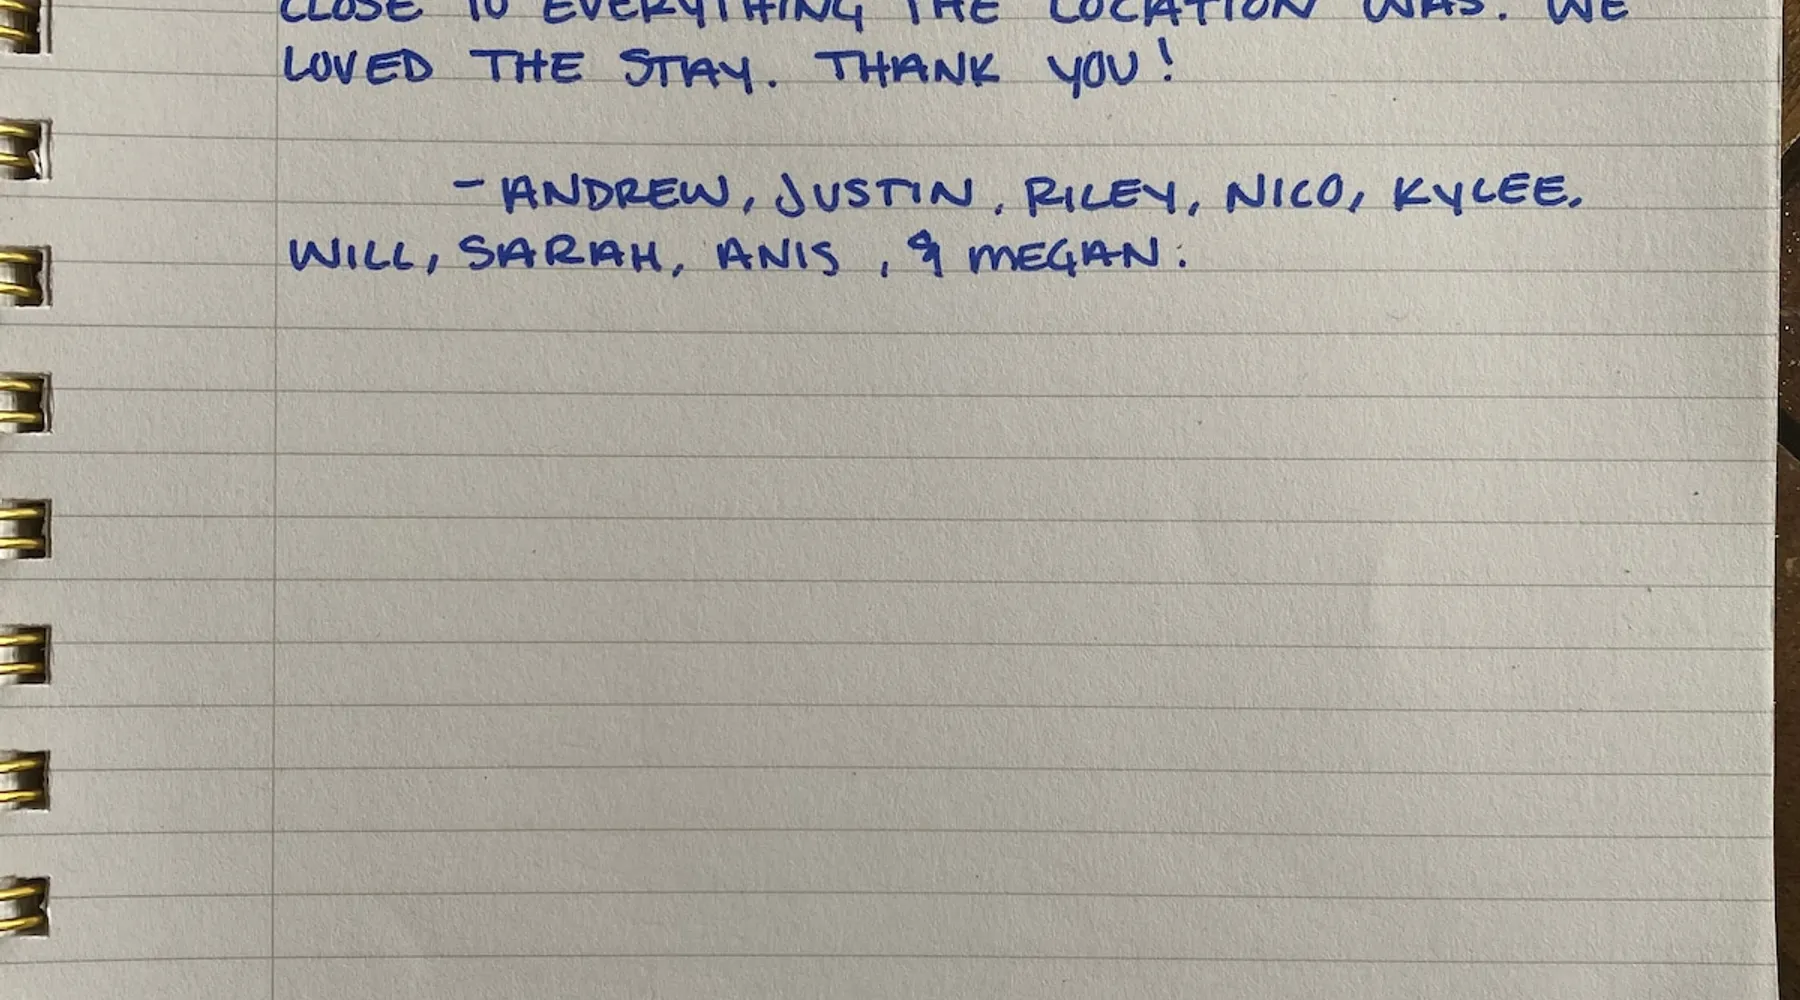 CLOSE TO EVERYTHING THE LOCATION WAS. WE
LOVED THE STAY. THANK YOU!
- ANDREW, JUSTIN, RILEY, NICO, KYLEE,
WILL, SARAH, ANIS, & MEGAN.